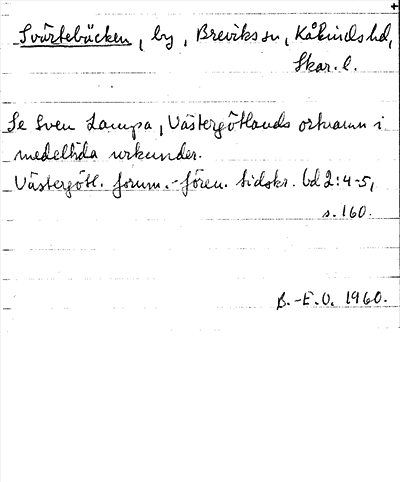 Svärtebäcken, by, Breviks sn, Kåkinds hd,
Skar. l.
Se Sven Lampa, Västergötlands ortnamn i
medeltida urkunder.
Västergötl. fornm.-fören. tidskr. bd 2:4-5,
s. 160.
B.-E.O. 1960.